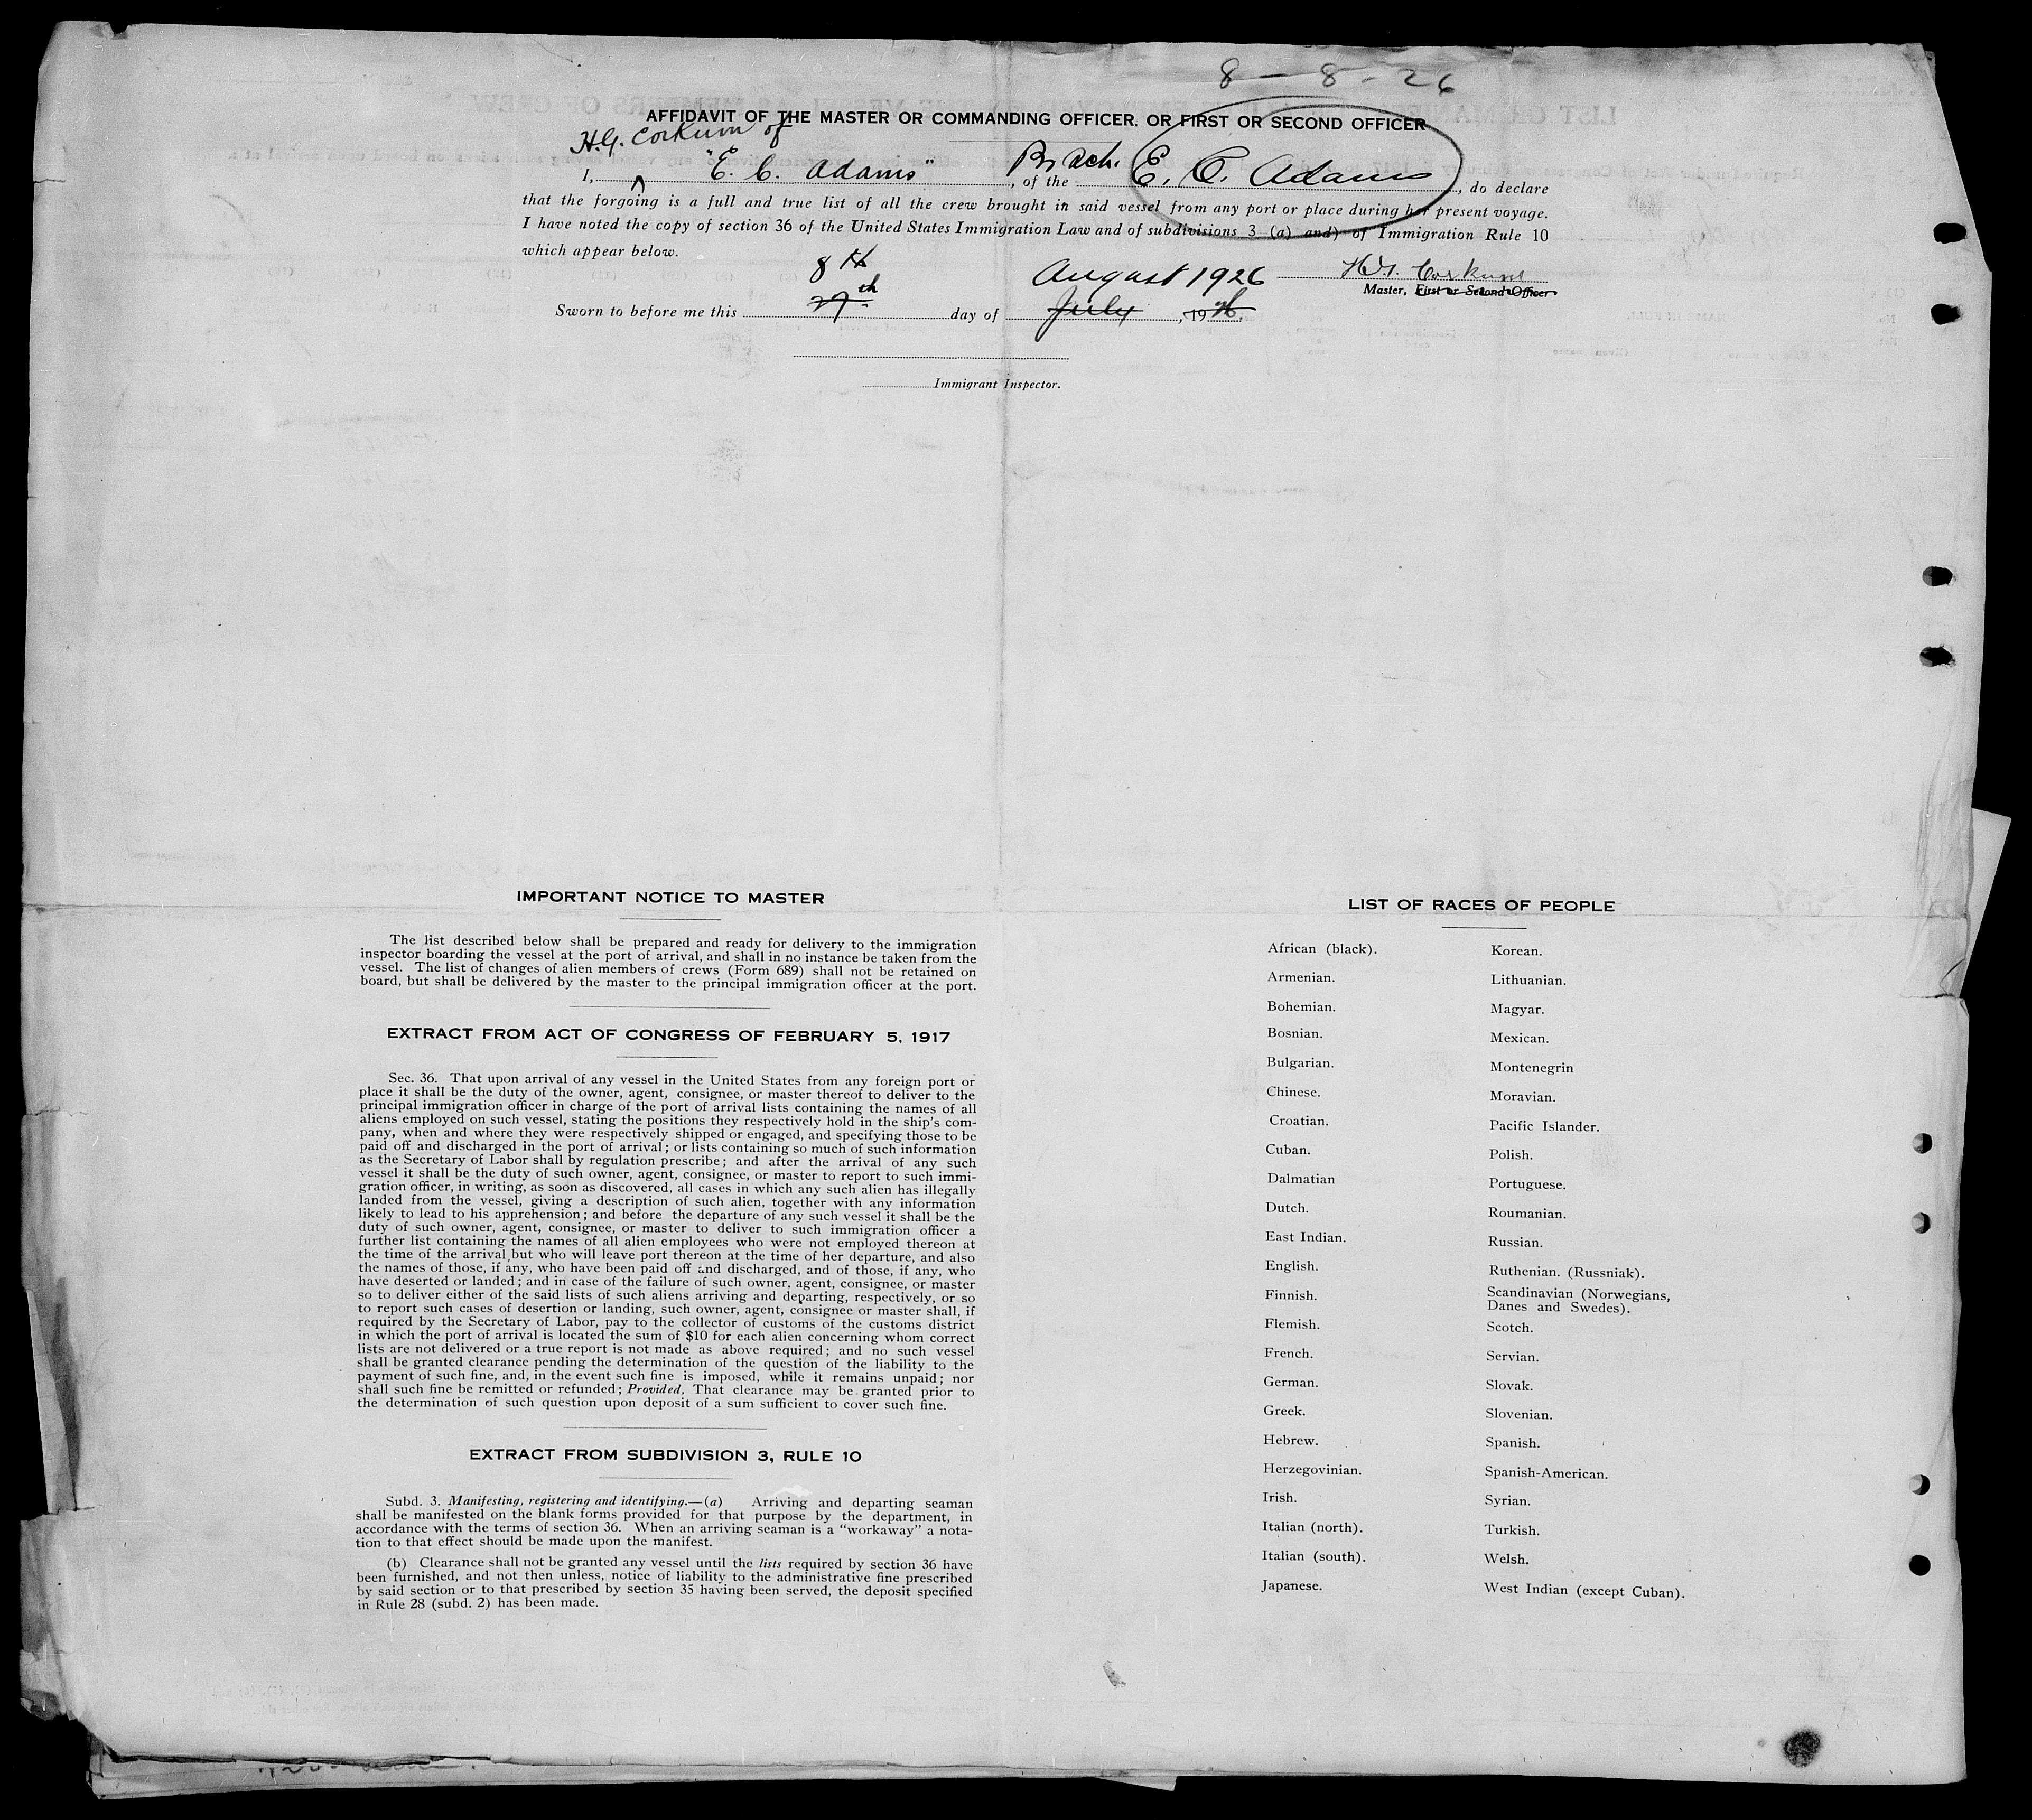 8 - 8 - 26
AFFIDAVIT OF THE MASTER OR COMMANDING OFFICER. OR FIRST OR SECOND OFFICER
H.G. Corkum of
I, "E. C. Adams", of the Br Sch. E. C. Adams, do declare
that the forgoing is a full and true list of all the crew brought in said vessel from any port or place during her present voyage.
I have noted the copy of section 36 of the United States Immigration Law and of subdivisions 3 (a) and) of Immigration Rule 10
which appear below.
8th August 1926 H.G. Corkum
Master, First or Second Officer
Sworn to before me this 27th day of July, 1926.
Immigrant Inspector.
IMPORTANT NOTICE TO MASTER
The list described below shall be prepared and ready for delivery to the immigration
inspector boarding the vessel at the port of arrival, and shall in no instance be taken from the
vessel. The list of changes of alien members of crews (Form 689) shall not be retained on
board, but shall be delivered by the master to the principal immigration officer at the port.
EXTRACT FROM ACT OF CONGRESS OF FEBRUARY 5, 1917
Sec. 36. That upon arrival of any vessel in the United States from any foreign port or
place it shall be the duty of the owner, agent, consignee, or master thereof to deliver to the
principal immigration officer in charge of the port of arrival lists containing the names of all
aliens employed on such vessel, stating the positions they respectively hold in the ship's com-
pany, when and where they were respectively shipped or engaged, and specifying those to be
paid off and discharged in the port of arrival; or lists containing so much of such information
as the Secretary of Labor shall by regulation prescribe; and after the arrival of any such
vessel it shall be the duty of such owner, agent, consignee, or master to report to such immi-
gration officer, in writing, as soon as discovered, all cases in which any such alien has illegally
landed from the vessel, giving a description of such alien, together with any information
likely to lead to his apprehension; and before the departure of any such vessel it shall be the
duty of such owner, agent, consignee, or master to deliver to such immigration officer a
further list containing the names of all alien employees who were not employed thereon at
the time of the arrival but who will leave port thereon at the time of her departure, and also
the names of those, if any, who have been paid off and discharged, and of those, if any, who
have deserted or landed; and in case of the failure of such owner, agent, consignee, or master
so to deliver either of the said lists of such aliens arriving and departing, respectively, or so
to report such cases of desertion or landing, such owner, agent, consignee or master shall, if
required by the Secretary of Labor, pay to the collector of customs of the customs district
in which the port of arrival is located the sum of $10 for each alien concerning whom correct
lists are not delivered or a true report is not made as above required; and no such vessel
shall be granted clearance pending the determination of the question of the liability to the
payment of such fine, and, in the event such fine is imposed, while it remains unpaid; nor
shall such fine be remitted or refunded; Provided, That clearance may be granted prior to
the determination of such question upon deposit of a sum sufficient to cover such fine.
EXTRACT FROM SUBDIVISION 3, RULE 10
Subd. 3. Manifesting, registering and identifying.—(a) Arriving and departing seaman
shall be manifested on the blank forms provided for that purpose by the department, in
accordance with the terms of section 36. When an arriving seaman is a "workaway" a nota-
tion to that effect should be made upon the manifest.
(b) Clearance shall not be granted any vessel until the lists required by section 36 have
been furnished, and not then unless, notice of liability to the administrative fine prescribed
by said section or to that prescribed by section 35 having been served, the deposit specified
in Rule 28 (subd. 2) has been made.
LIST OF RACES OF PEOPLE
African (black).
Armenian.
Bohemian.
Bosnian.
Bulgarian.
Chinese.
Croatian.
Cuban.
Dalmatian
Dutch.
East Indian.
English.
Finnish.
Flemish.
French.
German.
Greek.
Hebrew.
Herzegovinian.
Irish.
Italian (north).
Italian (south).
Japanese.
Korean.
Lithuanian.
Magyar.
Mexican.
Montenegrin
Moravian.
Pacific Islander.
Polish.
Portuguese.
Roumanian.
Russian.
Ruthenian. (Russniak).
Scandinavian (Norwegians,
Danes and Swedes).
Scotch.
Servian.
Slovak.
Slovenian.
Spanish.
Spanish-American.
Syrian.
Turkish.
Welsh.
West Indian (except Cuban).